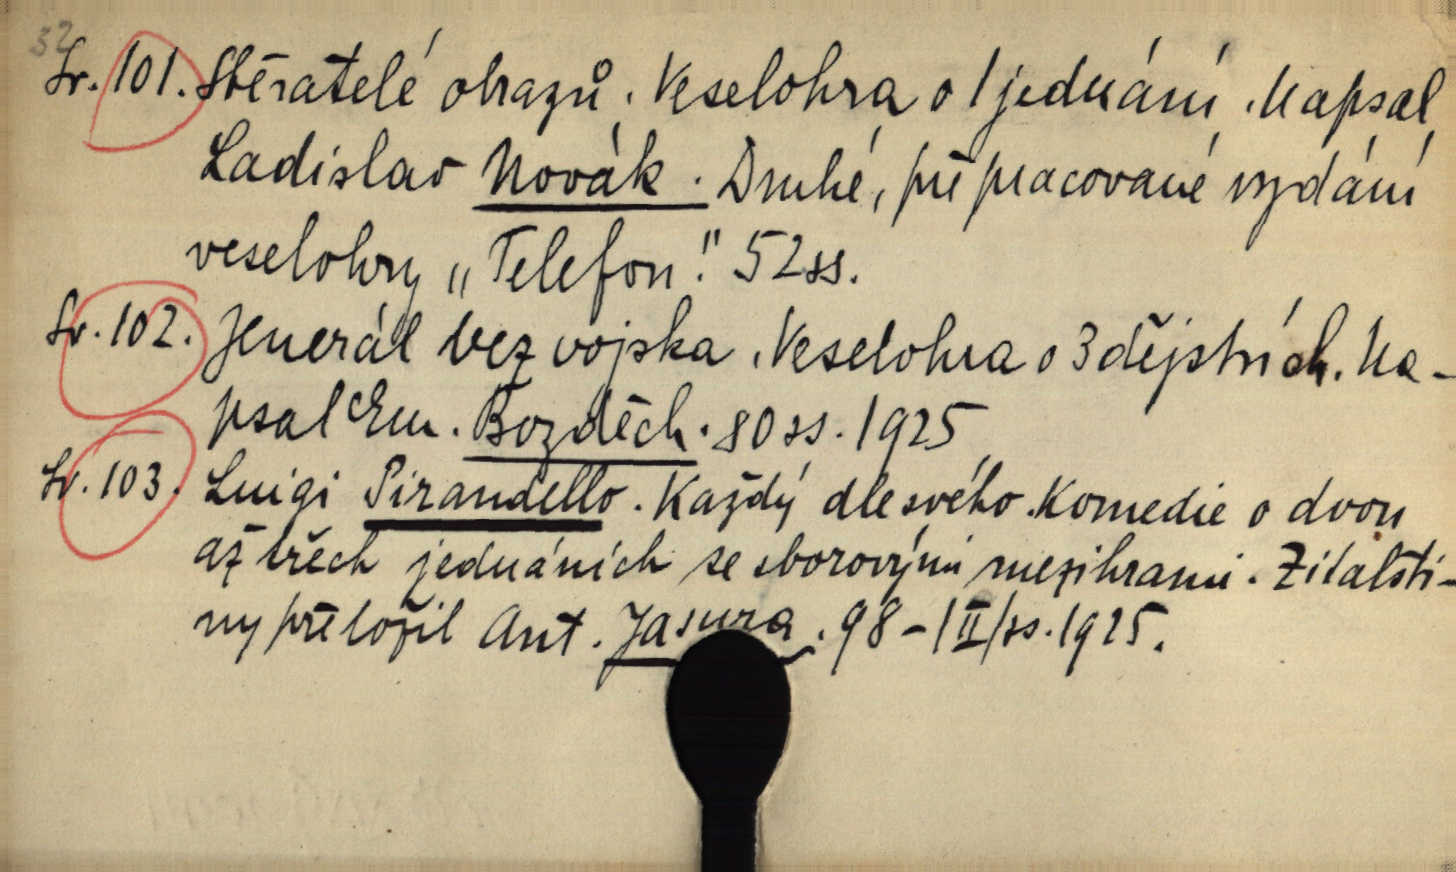 32
Sv. 101. Sběratelé obrazů. Veselohra o 1 jednání. Napsal
Ladislav Novák. Druhé, přepracované vydání
veselohry „Telefon". 52 ss.
Sv. 102. Jenerál bez vojska. Veselohra o 3 dějstvích. Na-
psal Em. Bozděch. 80 ss. 1925
Sv. 103. Luigi Pirandello. Každý dle svého. Komedie o dvou
až třech jednáních se sborovými mezihrami. Z italšti-
ny přeložil Ant. Jasura. 98-/II/ss. 1925.